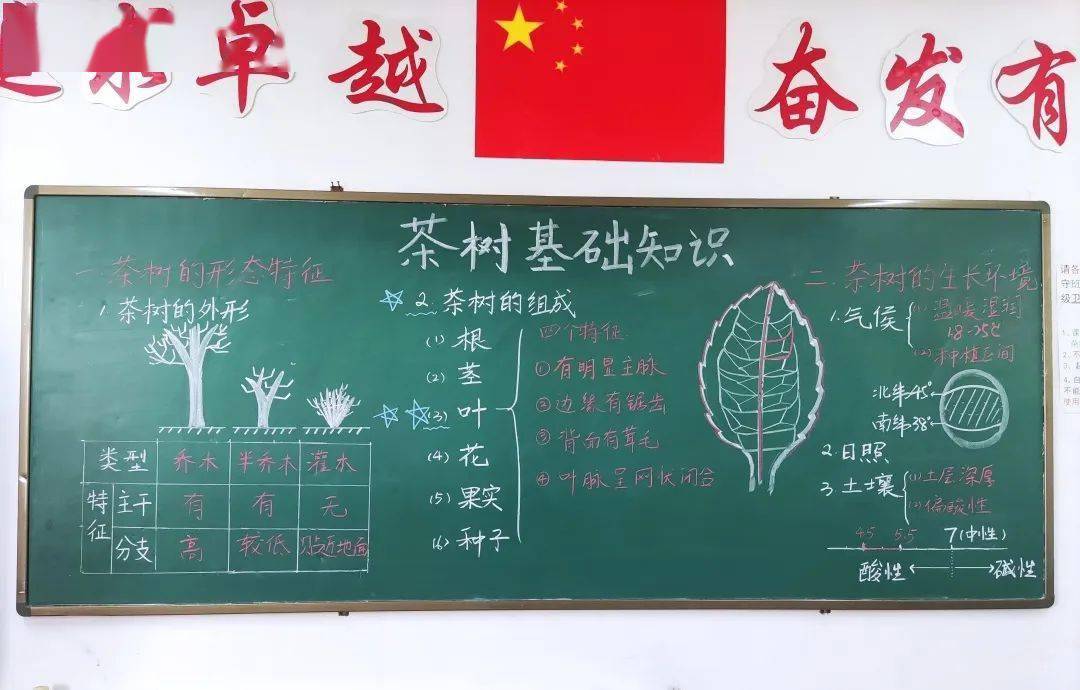 求卓越
奋发有
茶树基础知识
一.茶树的形态特征
1.茶树的外形
类型 乔木 半乔木 灌木
特征 主干 有 有 无
分支 高 较低 贴近地面
2.茶树的组成
(1) 根
(2) 茎
(3) 叶
(4) 花
(5) 果实
(6) 种子
四个特征
①有明显主脉
②边缘有锯齿
③背面有茸毛
④叶脉呈网状闭合
二.茶树的生长环境
1.气候
(1)温暖湿润
18-25℃
(2)种植区间
北纬45°
南纬38°
2.日照
3.土壤
(1)土层深厚
(2)偏酸性
4.5 5.5 7(中性)
酸性 碱性
请各
守班
级卫